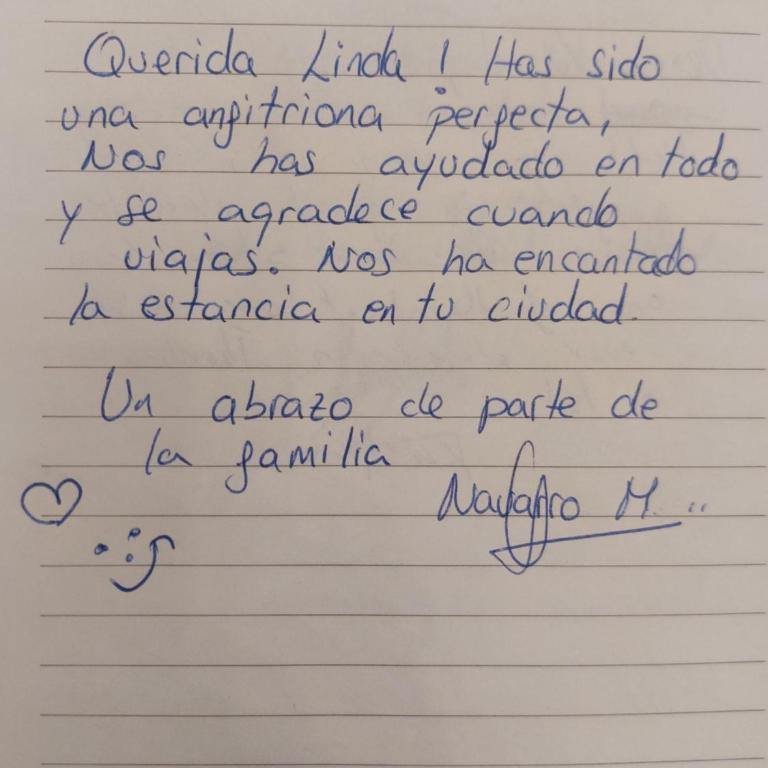 Querida Linda! Has sido
una anfitriona perfecta,
Nos has ayudado en todo
y se agradece cuando
viajas. Nos ha encantado
la estancia en tu ciudad.
Un abrazo de parte de
la familia
Navarro M..